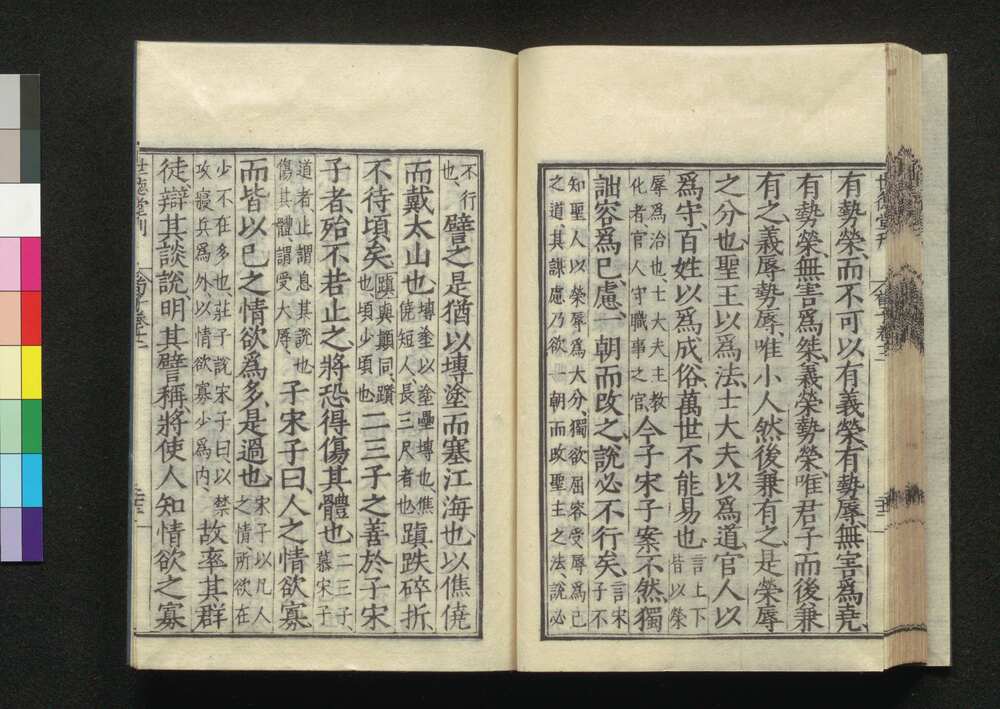 有勢榮、而不可以有義榮、有勢辱、無害爲堯、
有勢榮、無害爲桀、義榮勢榮、唯君子而後兼
有之、義辱勢辱、唯小人然後兼有之、是榮辱
之分也、聖王以爲法、士大夫以爲道、官人以
爲守、百姓以爲成俗、萬世不能易也、言上下皆以榮
辱爲治也、士大夫主教化者、官人守職事之官、今子宋子案不然、獨
詘容爲己、慮一朝而改之、說必不行矣、言宋子不
知聖人以榮辱爲大分、獨欲屈容受辱爲己之道、其謀慮乃欲一朝而改聖王之法、說必
不行也、譬之是猶以塼塗而塞江海也、以僬僥
而戴太山也、塼塗以塗壘塼也僬僥短人長三尺者也蹎跌碎折
不待頃矣、蹎與顛同躓也頃少頃也二三子之善於子宋
子者、殆不若止之、將恐得傷其體也、二三子、慕宋子
道者、止謂息其說也、傷其體、謂受大辱、子宋子曰、人之情欲寡
而皆以己之情欲爲多、是過也、宋子以凡人之情所欲在
少不在多也、莊子說宋子曰、以禁攻寢兵爲外、以情欲寡少爲内、故率其群
徒、辯其談說、明其譬稱、將使人知情欲之寡
世德堂刊